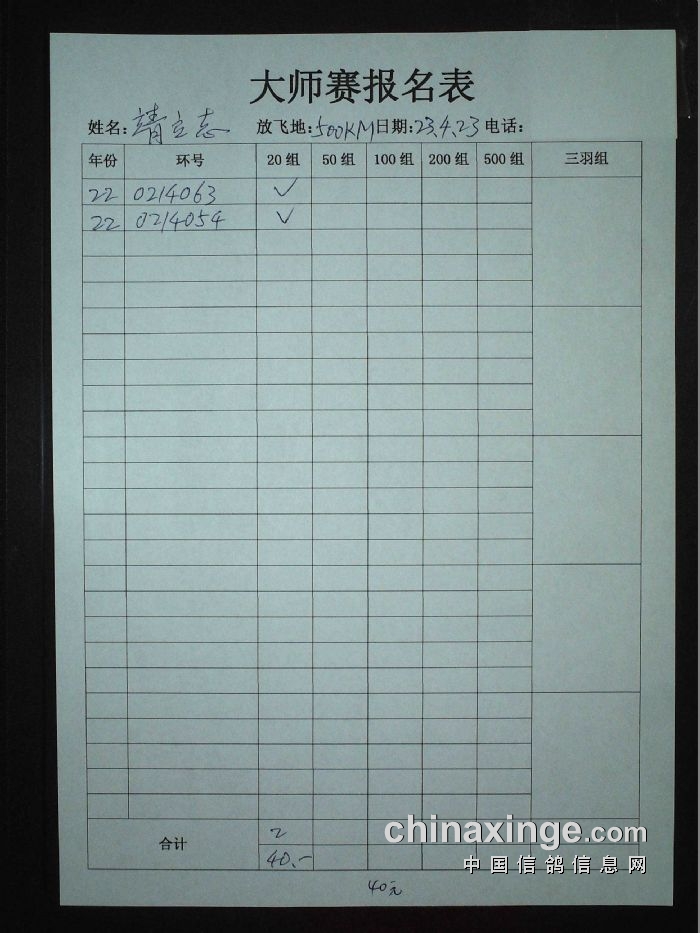 大师赛报名表
姓名: 靖立志 放飞地: 500KM 日期: 23.4.23 电话:
年份 环号 20 组 50 组 100 组 200 组 500 组 三羽组
22 0214063 ✓
22 0214054 ✓
合计 2
40.-
chinaxinge.com
中国信鸽信息网
40元